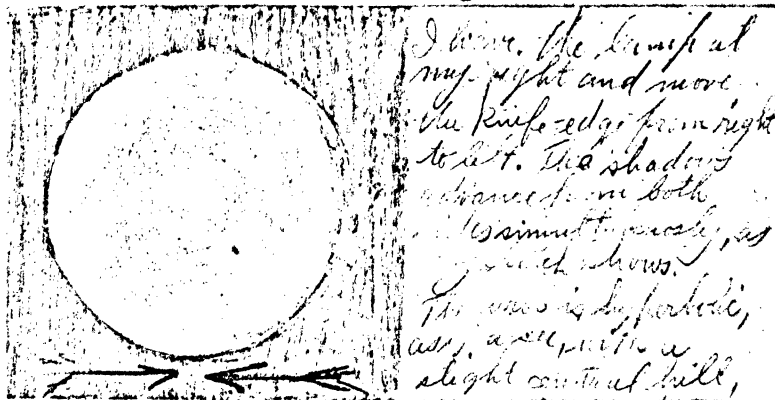 I have the lamp at
my right and move
the knife-edge from right
to left. The shadows
advance from both
simultaneously, as
shows.
is hyperbolic,
with a
slight central hill,